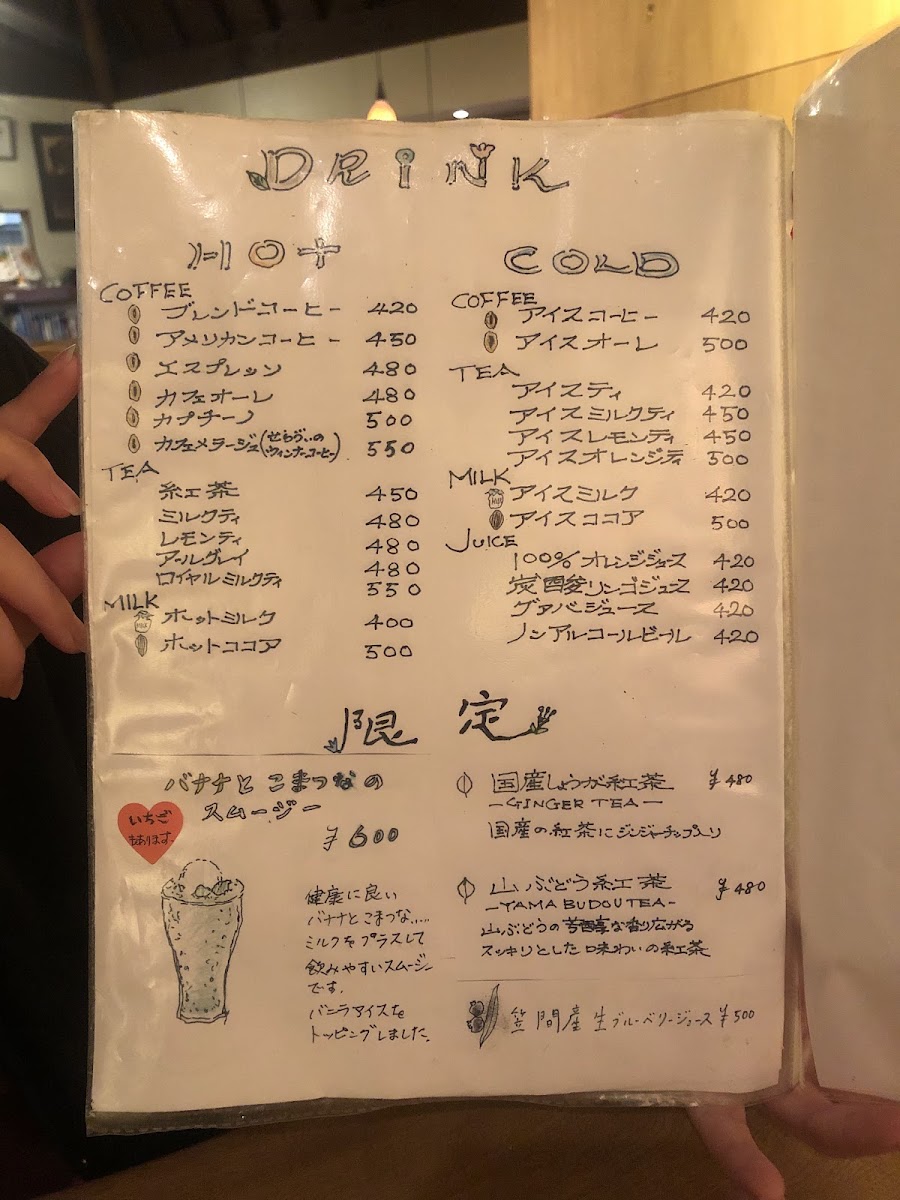 DRINK
HOT
COFFEE
ブレンドコーヒー 420
アメリカンコーヒー 450
エスプレッソ 480
カフェオーレ 480
カプチーノ 500
カフェメラージュ(せもうぃのウィンナーコーヒー) 550
TEA
紅茶 450
ミルクティ 480
レモンティ 480
アールグレイ 480
ロイヤルミルクティ 550
MILK
ホットミルク 400
ホットココア 500
COLD
COFFEE
アイスコーヒー 420
アイスオーレ 500
TEA
アイスティ 420
アイスミルクティ 450
アイスレモンティ 450
アイスオレンジティ 500
MILK
アイスミルク 420
アイスココア 500
JUICE
100%オレンジジュース 420
炭酸リンゴジュース 420
グァバジュース 420
ノンアルコールビール 420
限定
バナナとこまつなの
スムージー
いちご
もあります。
¥600
健康に良い
バナナとこまつな.....
ミルクをプラスして
飲みやすいスムージー
です。
バニラアイスを
トッピングしました。
国産しょうが紅茶 ¥480
-GINGER TEA-
国産の紅茶にジンジャーチップ入り
山ぶどう紅茶 ¥480
-YAMA BUDOU TEA-
山ぶどうの芳醇な香り広がる
スッキリとした味わいの紅茶
笠間産生ブルーベリージュース ¥500